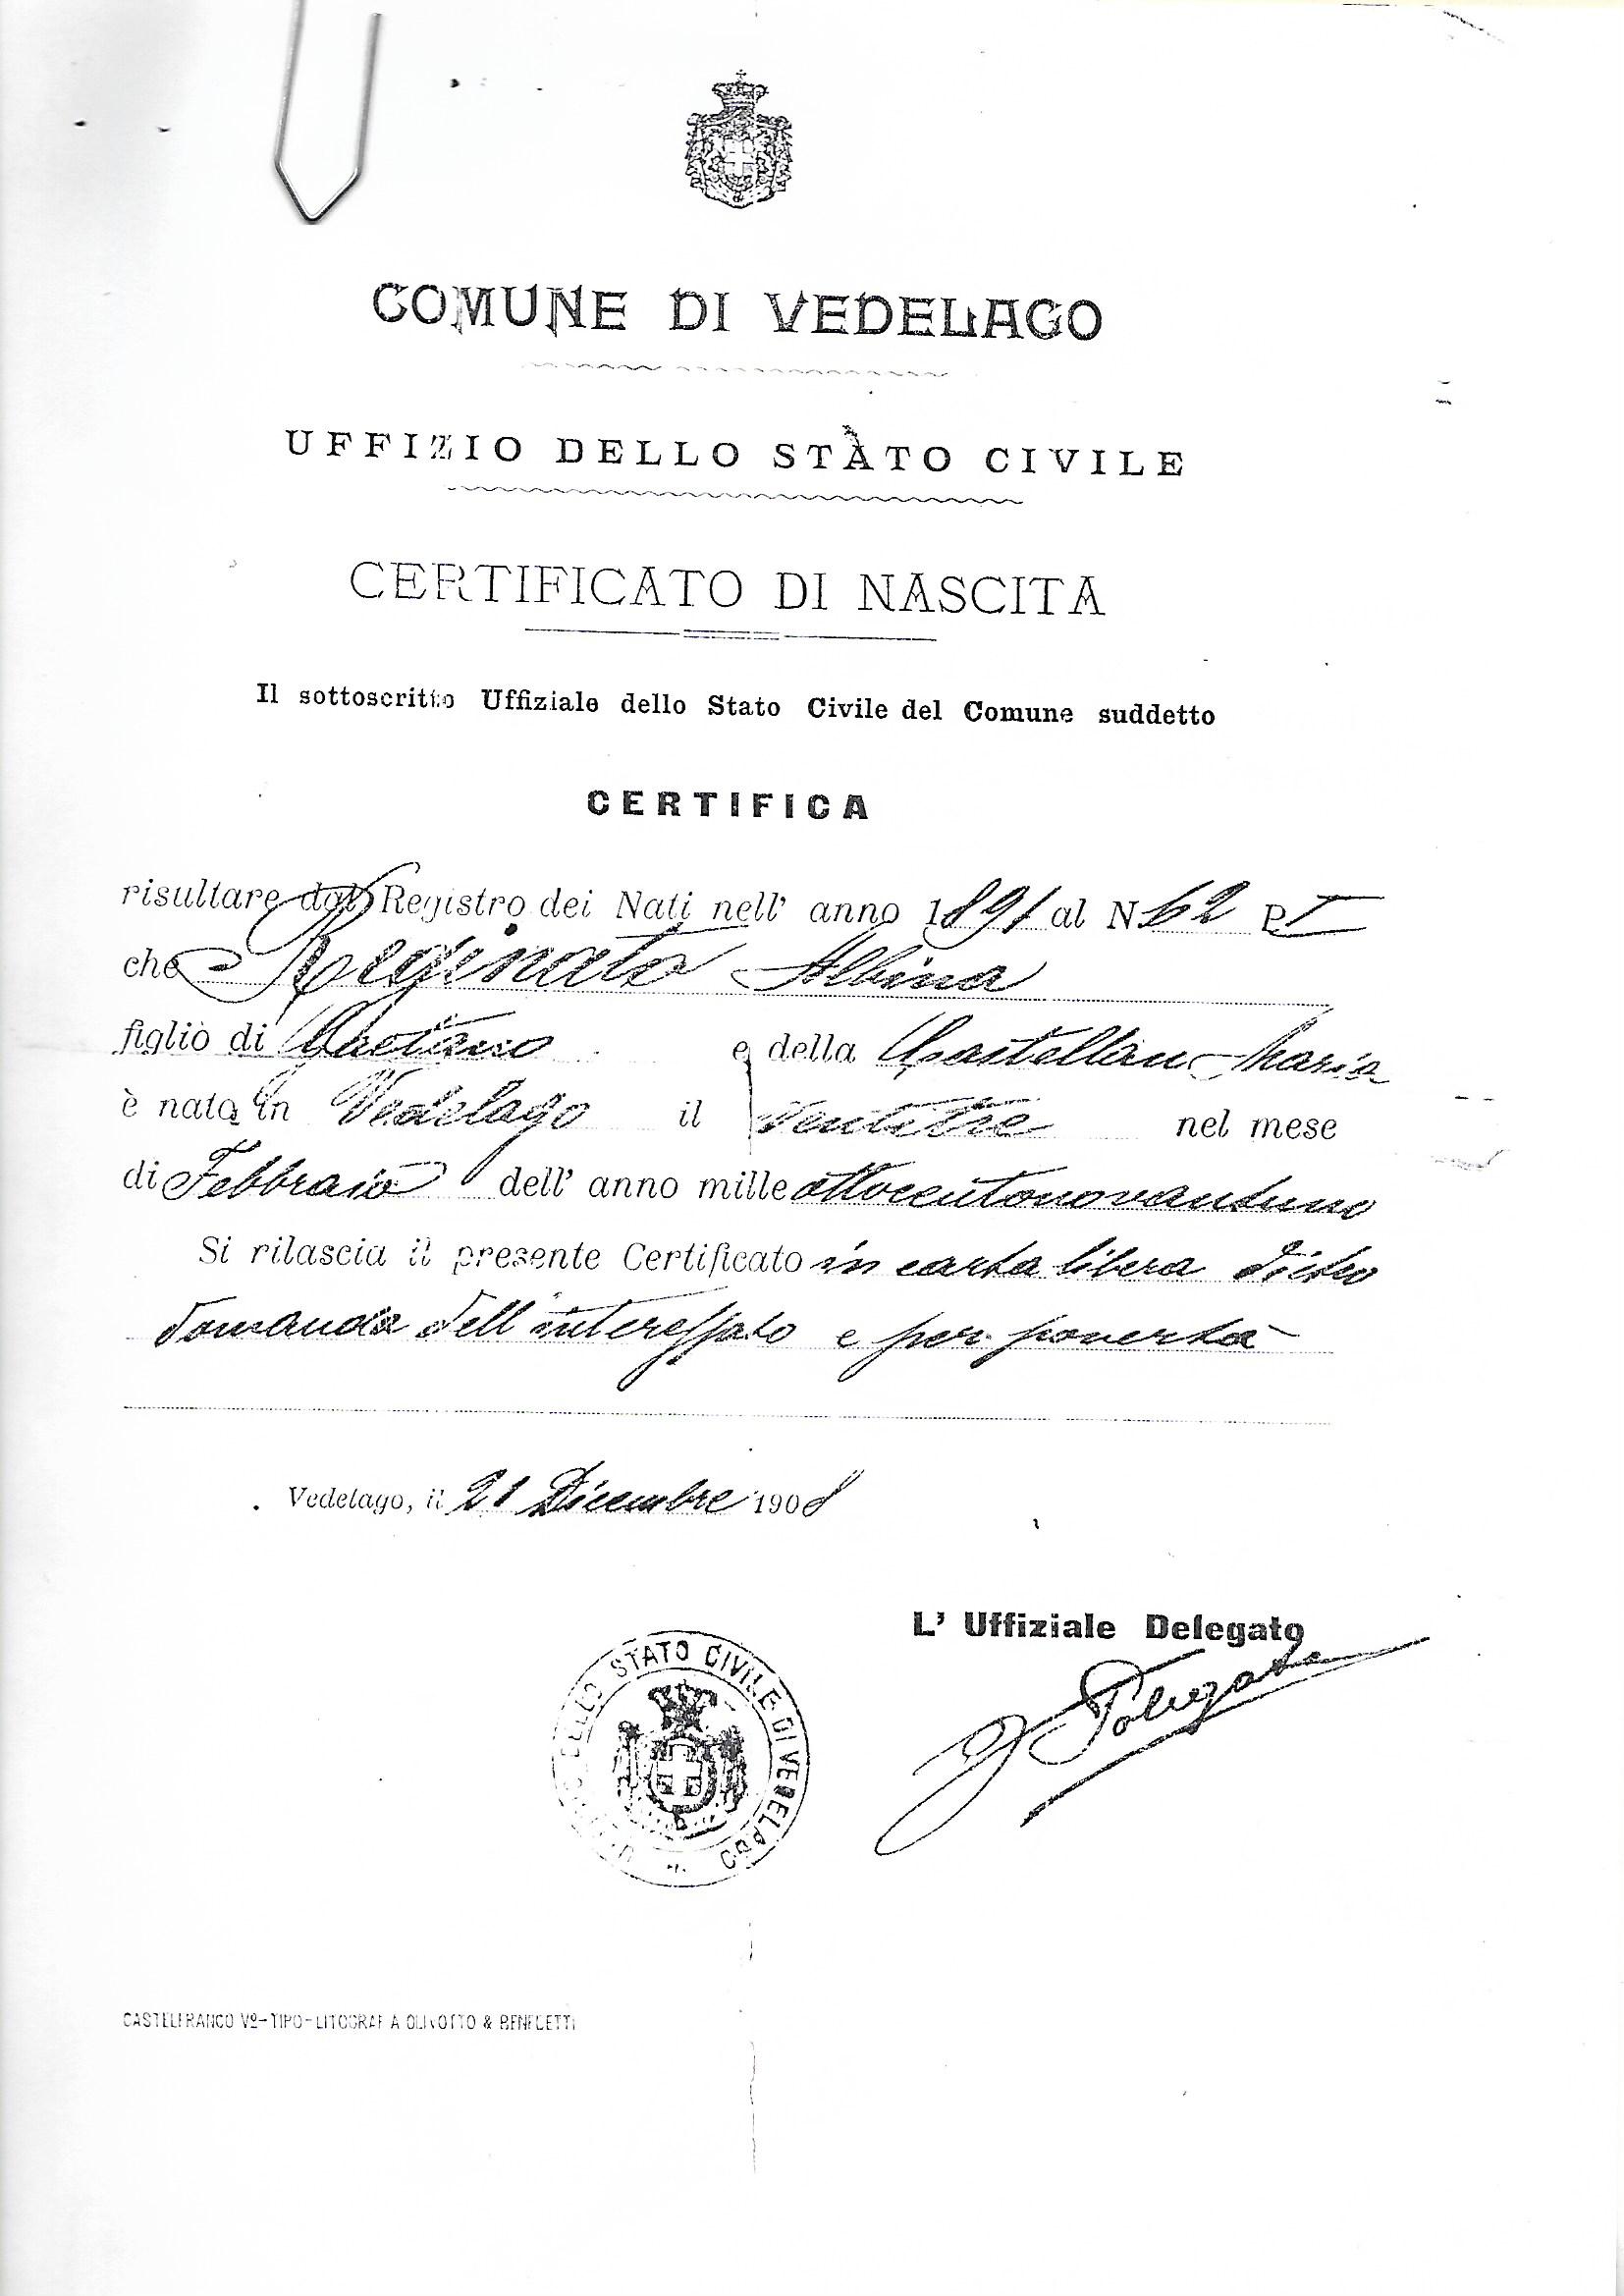 COMUNE DI VEDELAGO
UFFIZIO DELLO STATO CIVILE
CERTIFICATO DI NASCITA
Il sottoscritto Uffiziale dello Stato Civile del Comune suddetto
CERTIFICA
risultare dal Registro dei Nati nell' anno 1891 al N 62 P I
che Reginato Albina
figlio di Gaetano e della Castellan Maria
è nata in Vedelago il ventitre nel mese
di Febbraio dell' anno mille ottocentonovantuno
Si rilascia il presente Certificato in carta libera dietro
domanda dell interessato e per povertà
Vedelago, il 21 Dicembre 1908
L' Uffiziale Delegato
STATO CIVILE DI VEDELAGO
CASTELFRANCO Vº-TIPO-LITOGRAFIA OLIVOTTO & BENEDETTI